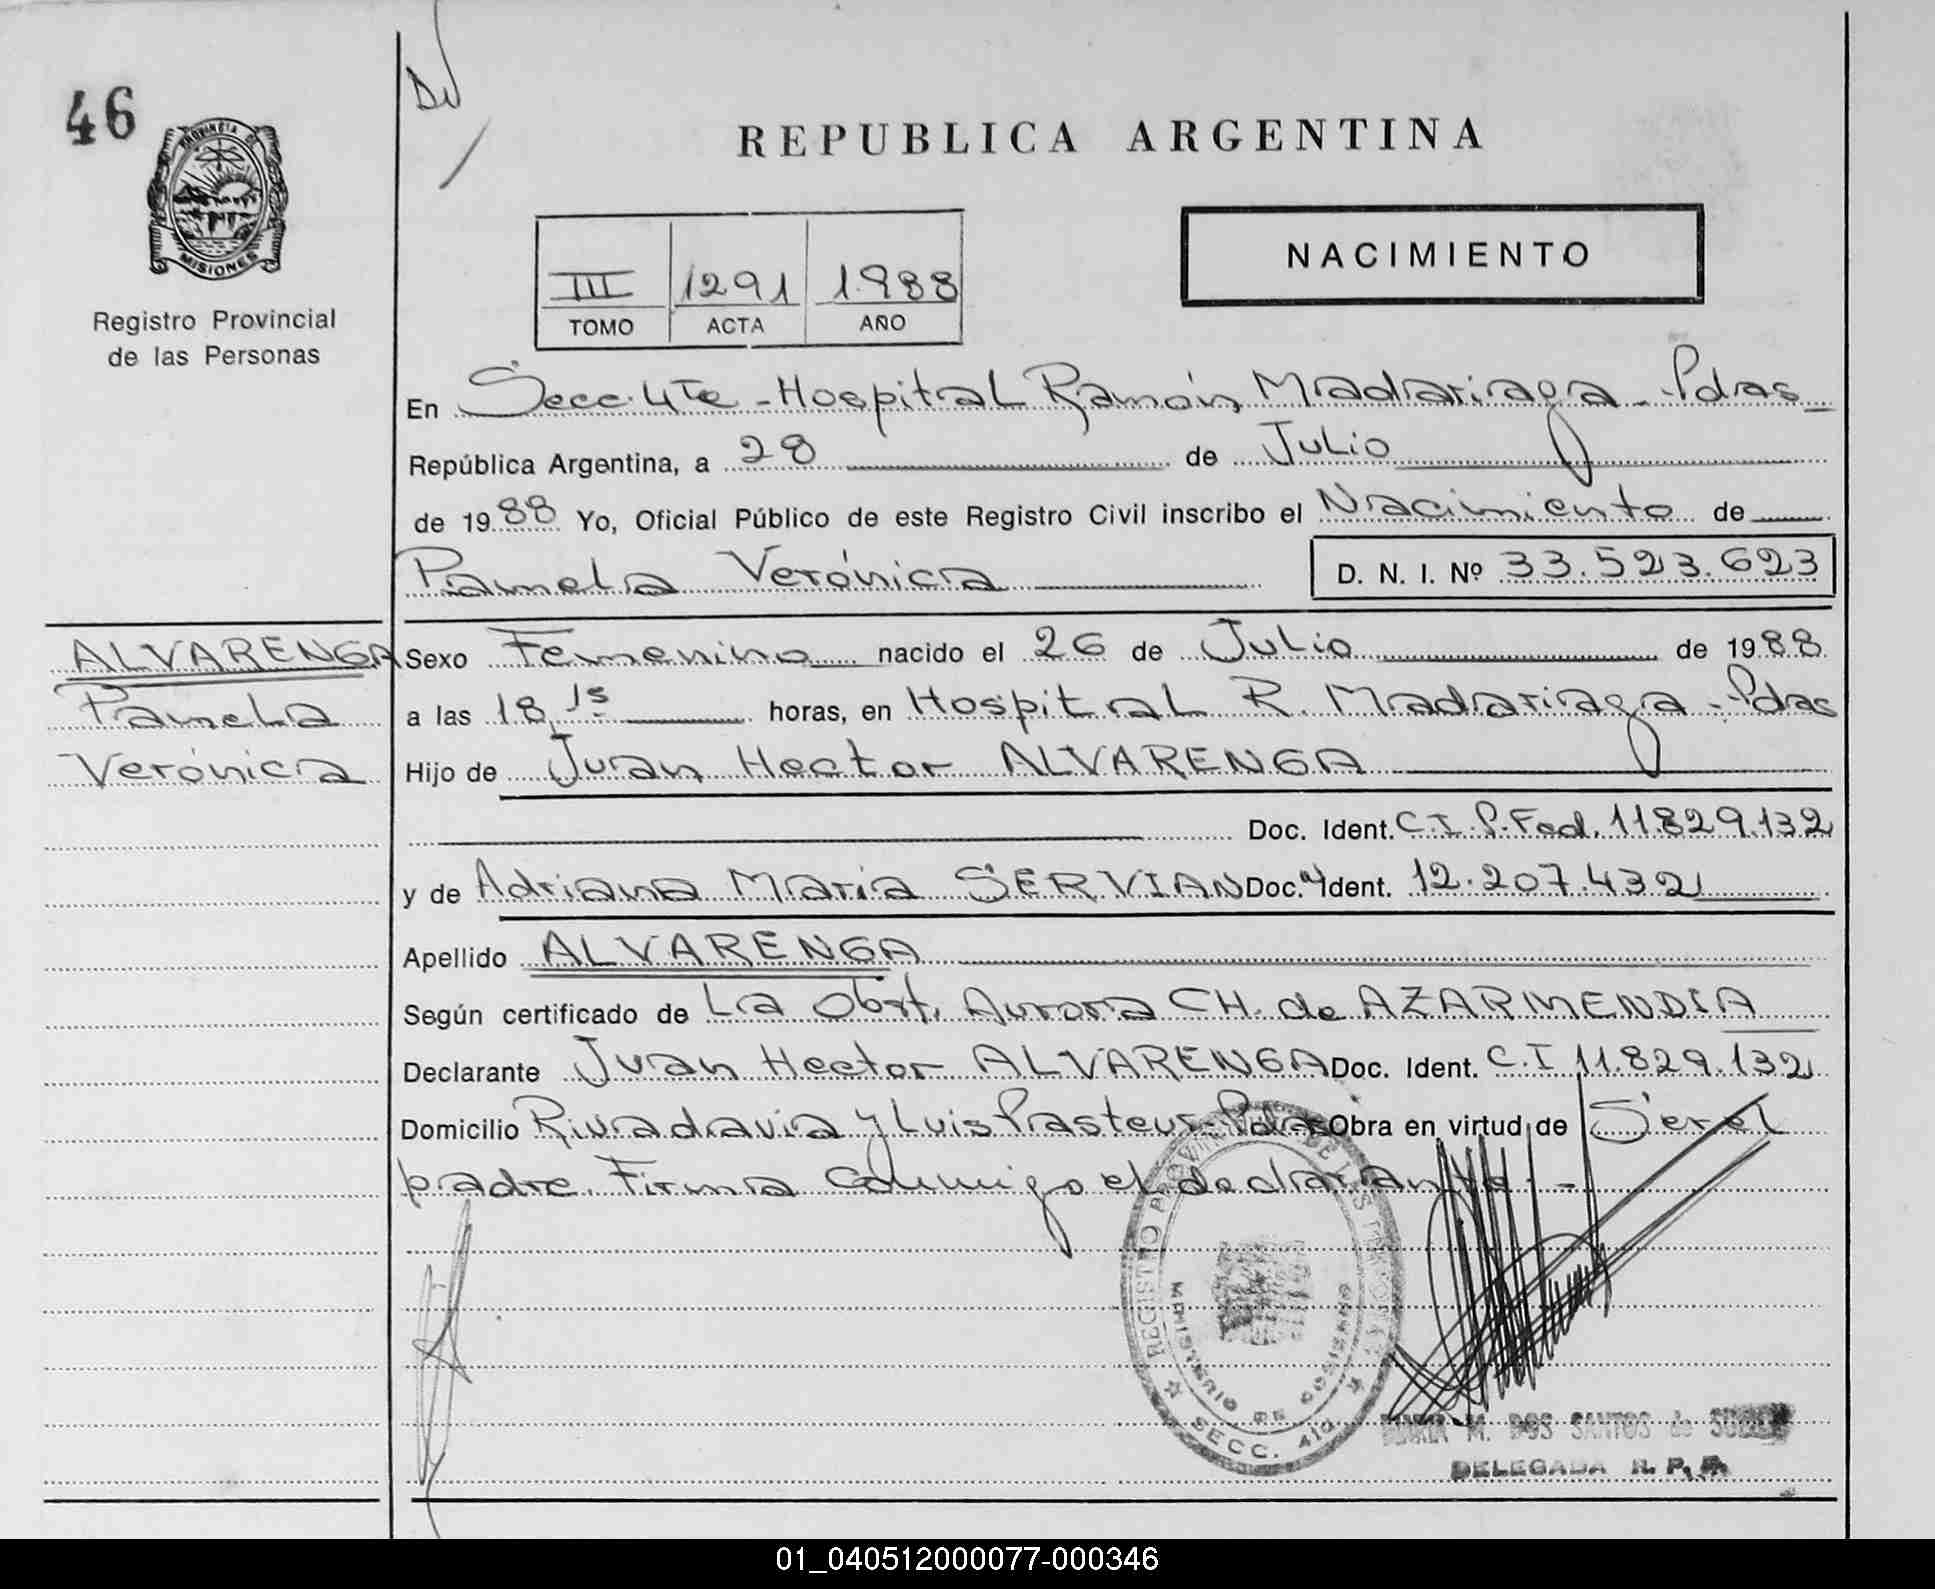 46
PROVINCIA DE
MISIONES
Registro Provincial
de las Personas
REPUBLICA ARGENTINA
NACIMIENTO
III 1291 1988
TOMO ACTA AÑO
En Secc. 4Ta - Hospital Ramón Madariaga - Pdas
República Argentina, a 28 de Julio
de 1988 Yo, Oficial Público de este Registro Civil inscribo el Nacimiento de
Pamela Verónica D. N. I. Nº 33.523.623
ALVARENGA
Pamela
Verónica
Sexo Femenino nacido el 26 de Julio de 1988
a las 18,15 horas, en Hospital R. Madariaga - Pdas
Hijo de Juan Hector ALVARENGA
Doc. Ident. C.I.P.Fed. 11.829.132
y de Adriana Maria SERVIAN Doc. Ident. 12.207.432
Apellido ALVARENGA
Según certificado de La Obst. Aurora CH. de AZARMENDIA
Declarante Juan Hector ALVARENGA Doc. Ident. C.I 11.829.132
Domicilio Rivadavia y Luis Pasteur - Pdas Obra en virtud de Ser el
padre. Firma conmigo el declarante. -
MINISTERIO DE GOBIERNO
SECC. 4ta
M. DOS SANTOS de
DELEGADA R. P. P.
01_040512000077-000346